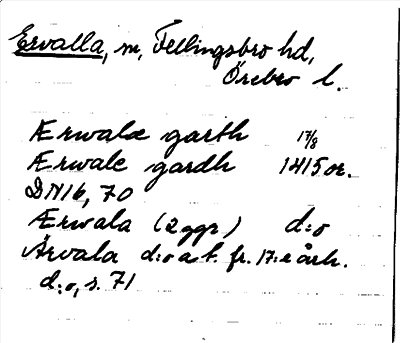 Ervalla, sn, Fellingsbro hd,
Örebro l.
Ærwalæ garth 17/8
Ærwale gardh 1415 or.
DN 16, 70
Ærwala (2 ggr) d:o
Ärvala d:o a t. fr. 17:e årh.
d:o, s. 71